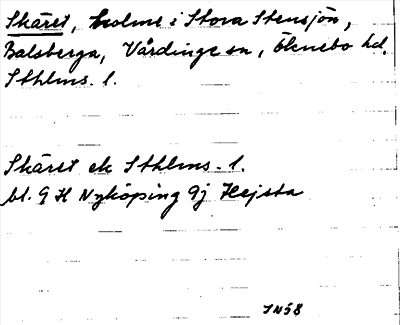 Skäret, holme i Stora Stensjön,
Balsberga, Vårdinge sn, Öknebo hd,
Sthlms. l.
Skäret ek Sthlms. l.
bl. 9 H Nyköping 9j Hejsta
IN58